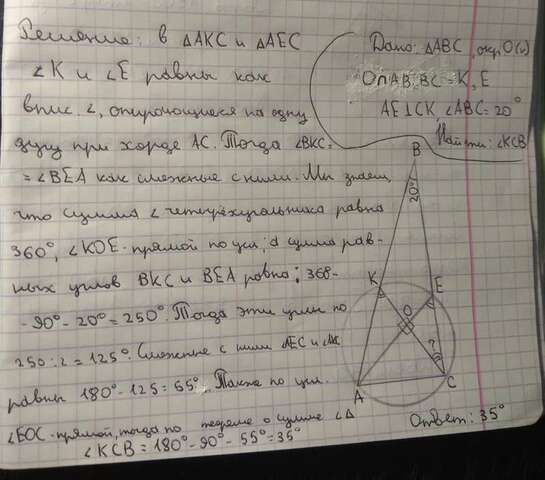 Решение: в △АКС и △АЕС
∠К и ∠Е равны как
впис. ∠, опирающиеся на одну
дугу при хорде АС. Тогда ∠ВКС=
=∠ВЕА как смежные с ними. Мы знаем,
что сумма ∠ четырёхугольника равна
360°, ∠КОЕ-прямой по усл., а сумма рав-
ных углов ВКС и ВЕА равна: 360-
-90°-20°=250°. Тогда эти углы по
250:2=125°. Смежные с ними АЕС и
равны 180°-125=55°. Также по усл.
∠ЕОС-прямой, тогда по теореме о сумме ∠△
∠КСВ=180°-90°-55°=35°
Дано: △АВС, окр.О(r)
О∩АВ,ВС=К,Е
АЕ⊥СК, ∠АВС=20°
Найти: ∠КСВ
В
20°
К
Е
О
?
А
С
Ответ: 35°